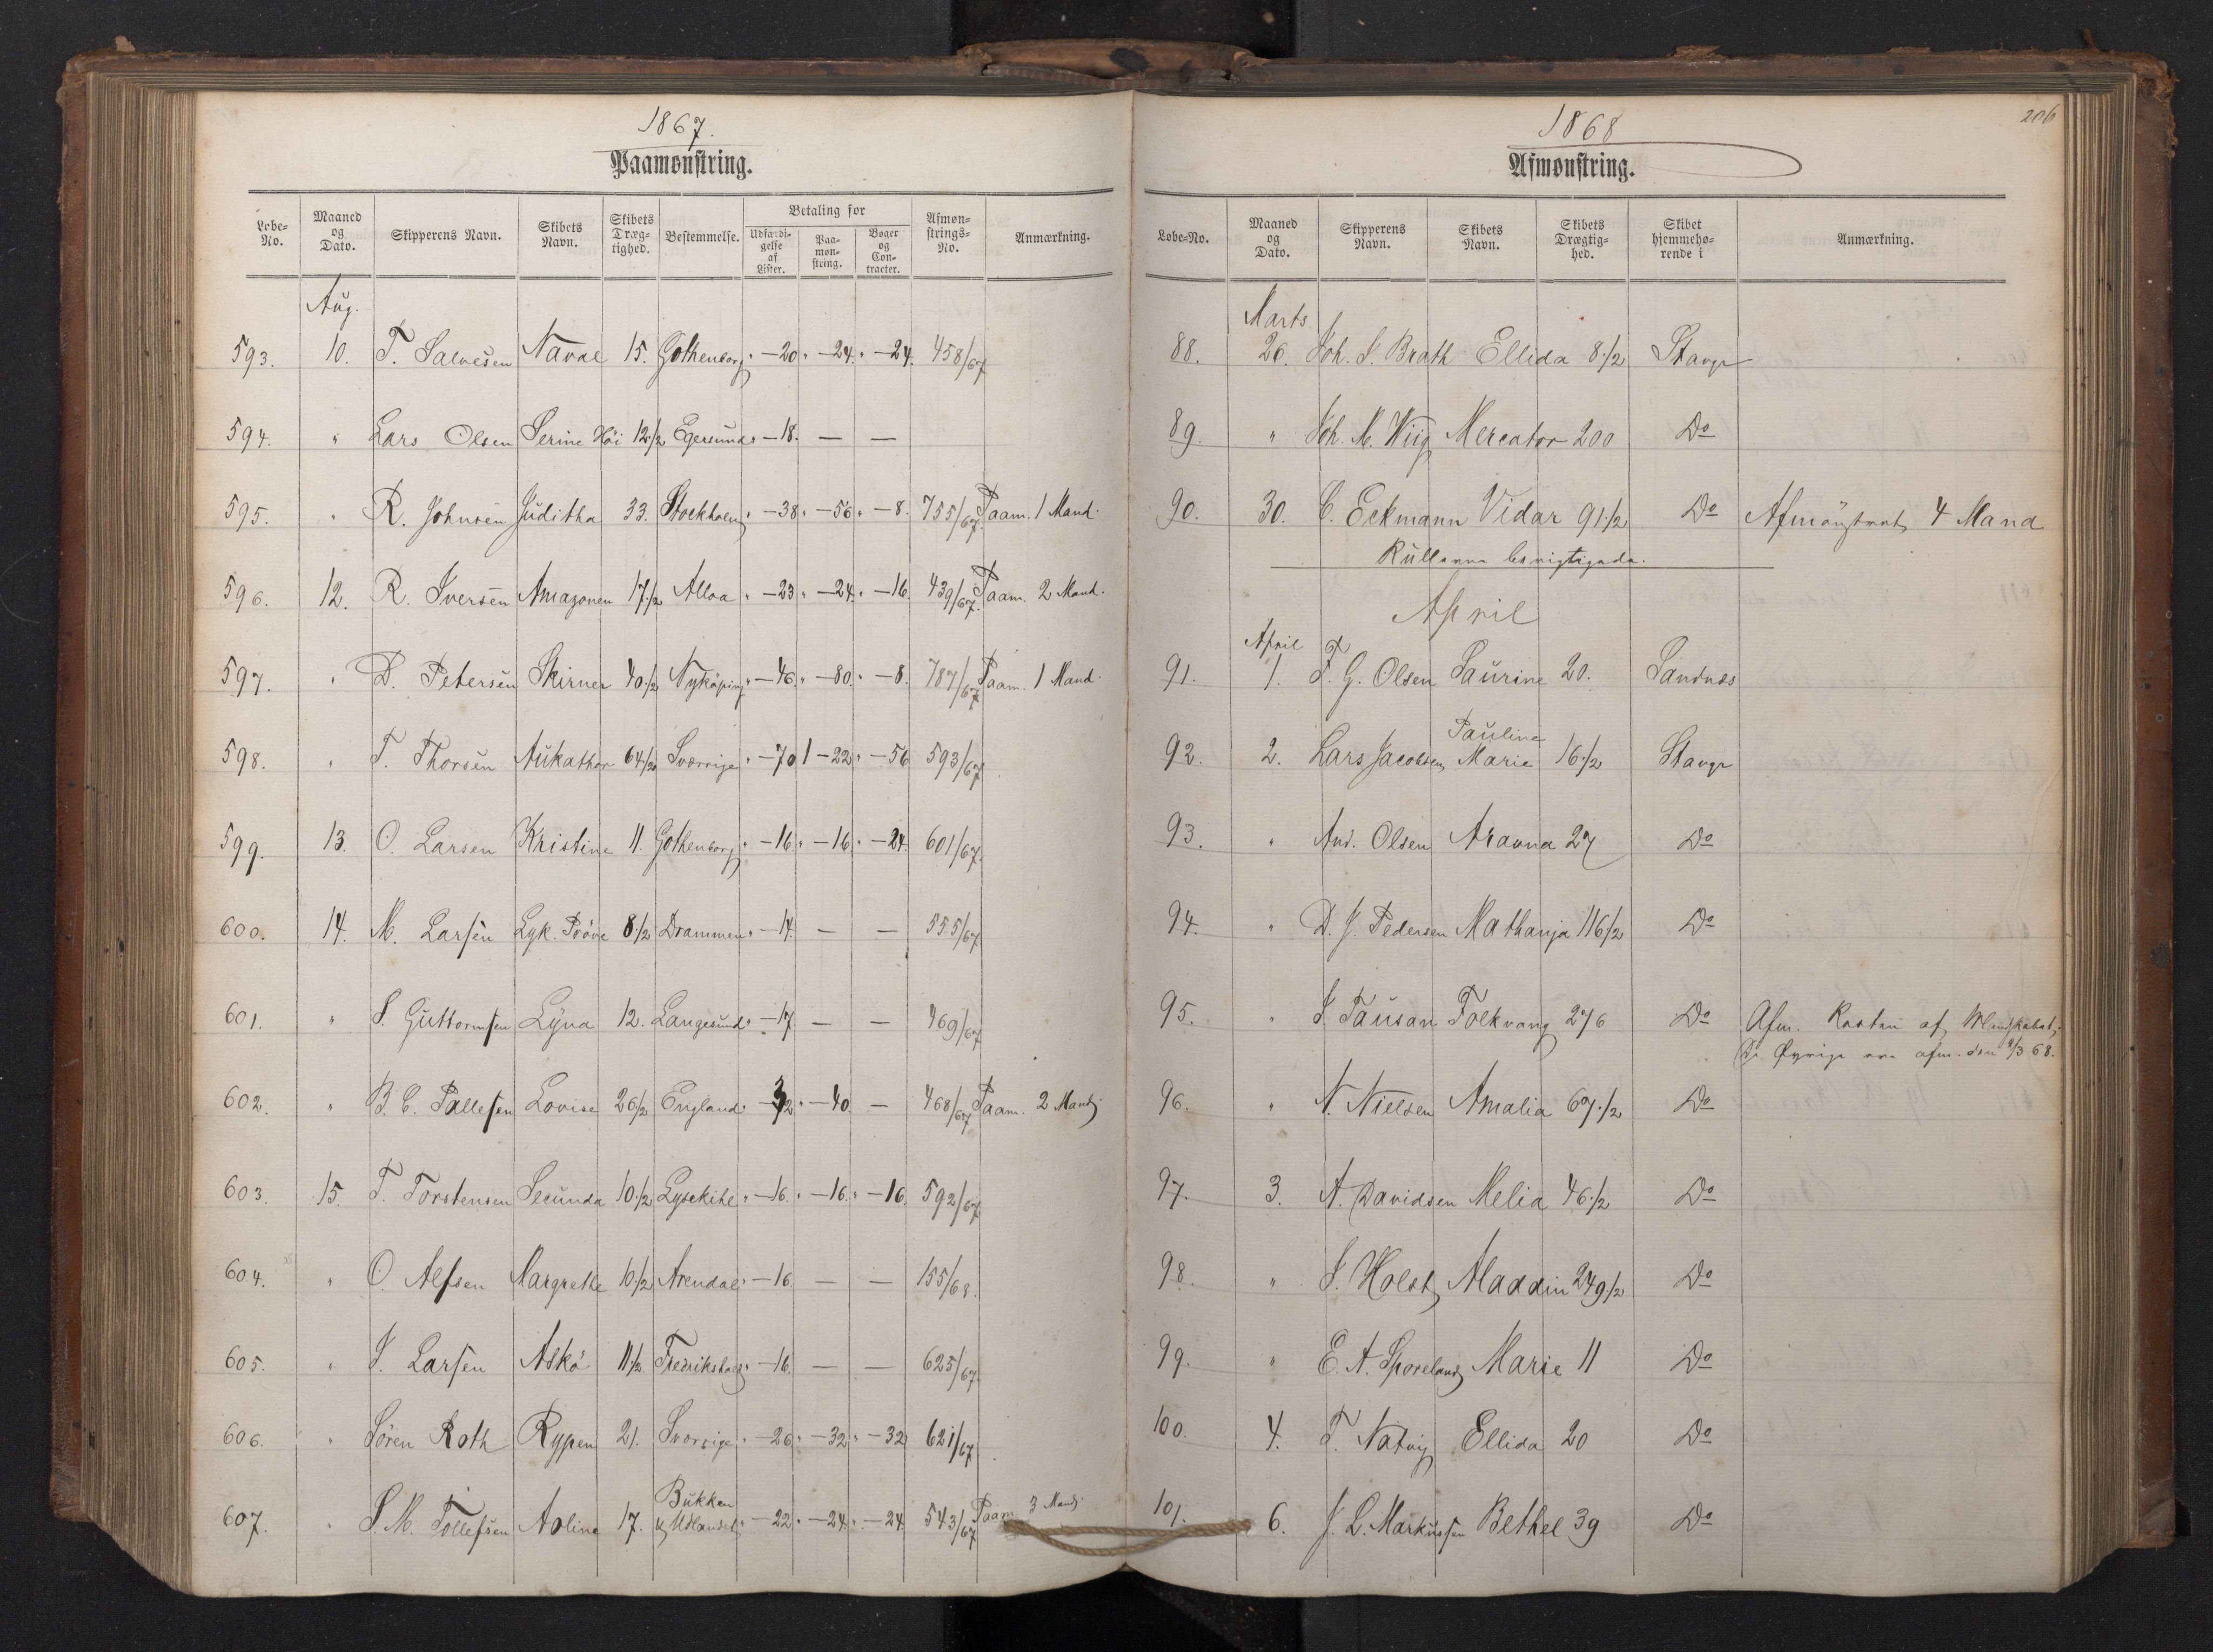 1867.
Paamønstring.
Løbe-No. Maaned og Dato. Skipperens Navn. Skibets Navn. Skibets Dræg-tighed. Bestemmelse. Betaling for Udfærdi-gelse af Lister. Paa-møn-string. Bøger og Con-tracter. Afmøn-strings-No. Anmærkning.
Aug.
593. 10. T. Salvesen Naval 15. Gothenborg " - 20 " - 24. " - 24. 458/67
594. " Lars Olsen Serine Höi 12 1/2 Egersund " - 18. — —
595. " R. Johnsen Juditha 33. Stockholm " - 38 " - 56 " - 8. 755/67. Paam. 1 Mand.
596. 12. R. Iversen Amazonen 17 1/2 Alloa " - 23 " - 24. " - 16. 439/67. Paam. 2 Mand.
597. " D. Petersen Skirner 40 1/2 Nyköping " - 46. " - 80. " - 8. 787/67 Paam. 1 Mand.
598. " T. Thorsen Aukathor 64 1/2 Sverrige " - 70 1 - 22 " - 56 593/67
599. 13. O. Larsen Kristine 11. Gothenborg " - 16 " - 16. " - 24. 601/67.
600. 14. M. Larsen Lyk. Pröve 8 1/2 Drammen " - 14. — — 555/67
601. " S. Guttormsen Lyna 12. Langesund " - 17. — — 469/67
602. " B. C. Tallefsen Lovise 26 1/2 England " - 32 " - 40. — 468/67 Paam. 2 Mand
603. 15. T. Torstensen Secunda 10 1/2 Lysekihl " - 16. " - 16. " - 16. 592/67
604. " O. Alfsen Margrethe 10 1/2 Arendal " - 16. — — 155/68.
605. " J. Larsen Askö 11 1/2 Fredrikshald " - 16. — — 625/67.
606. " Sören Roth Rypen 21. Sverrige " - 26 " - 32 " - 32 621/67
607. " S. M. Tollefsen Aoline 17. Bukken & Udlandet " - 22 " - 24 " - 24. 543/67 Paam 3 Mand.
206
1868
Afmønstring.
Løbe-No. Maaned og Dato. Skipperens Navn. Skibets Navn. Skibets Drægtig-hed. Skibet hjemmehø-rende i Anmærkning.
Marts
88. 26. Joh. S. Brath Ellida 8 1/2 Stavgr
89. " Joh. M. Wiig Mercator 200 Do
90. 30. C. Eckmann Vidar 91 1/2 Do Afmönstret 4 Mand
Rullerne berigtigede.
April
April
91. 1. T. G. Olsen Saurine 20. Sandnæs
92. 2. Lars Jacobsen Pauline Marie 16 1/2 Stavgr
93. " And. Olsen Aravna 27 Do
94. " D. J. Pedersen Mathanja 116 1/2 Do
95. " J. Tausan Folkvang 276 Do Afm. Resten af Mandskabet,
De Øvrige ere afm. den 9/3 68.
96. " N. Nielsen Amalia 67 1/2 Do
97. 3. A. Davidsen Melia 46 1/2 Do
98. " J. Holst Aladdin 249 1/2 Do
99. " E. A. Sporeland Marie 11 Do
100. 4. T. Natvig Ellida 20 Do
101. 6. J. L. Markussen Bethel 39 Do